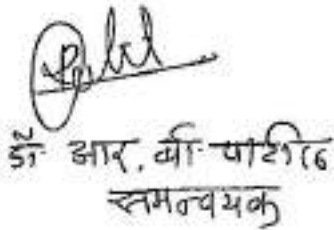 डॉ. आर. बी. पाटील
समन्वयक